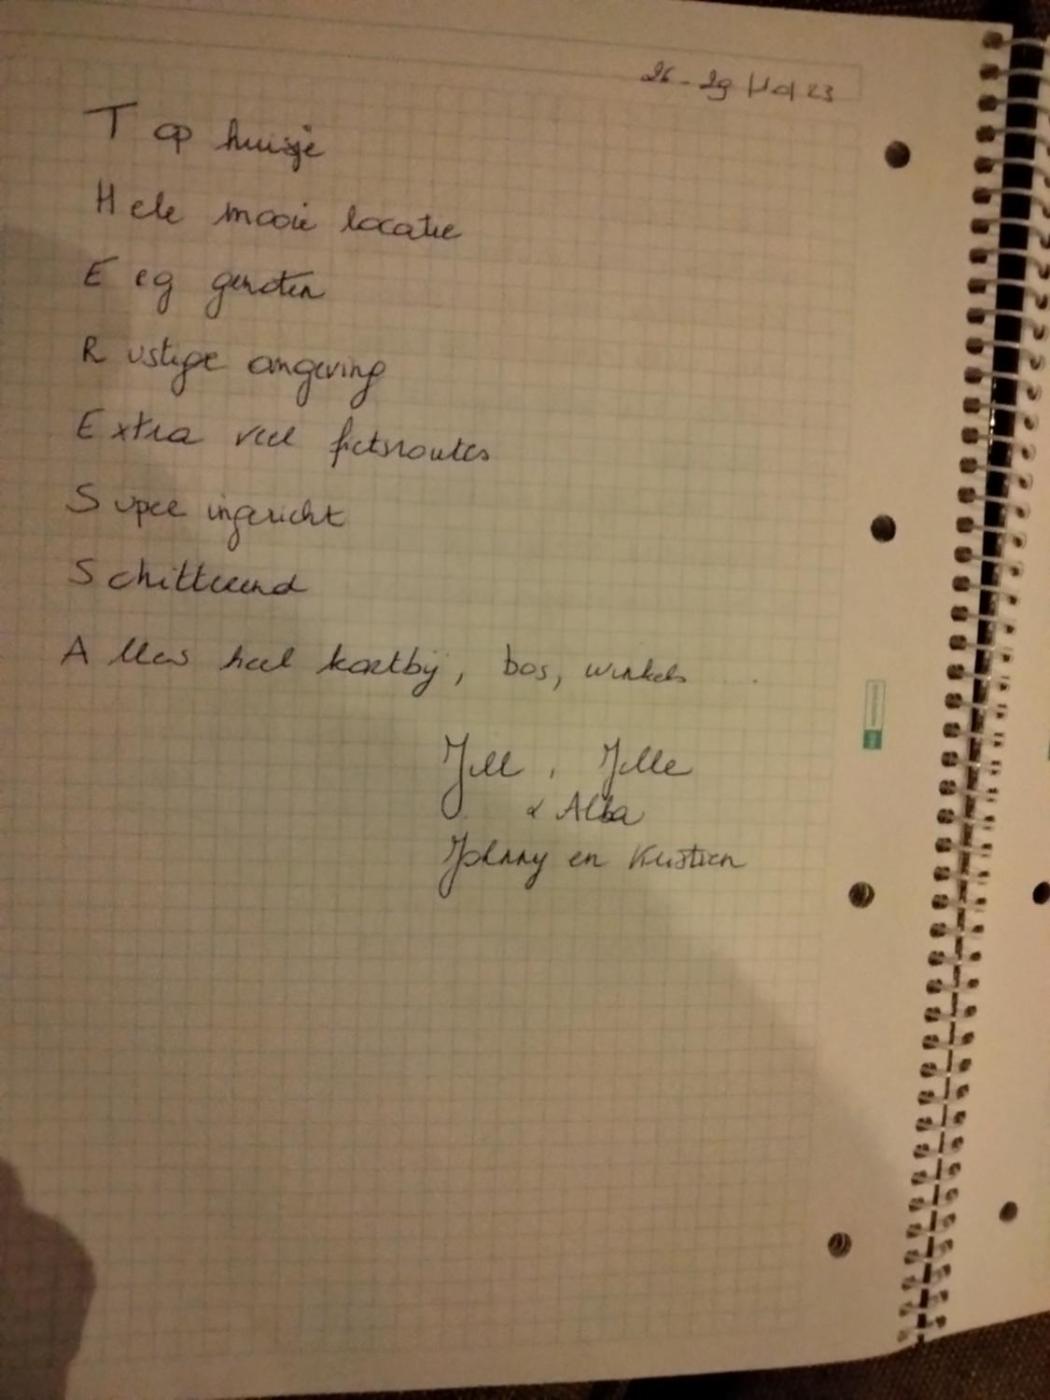 26-29/10/23
Top huisje
Hele mooie locatie
Eeg genoten
Rustige omgeving
Extra veel fietsroutes
Super ingericht
Schitterend
Alles heel kortbij, bos, winkels
Jill, Jelle
& Alba
Johnny en Kristien